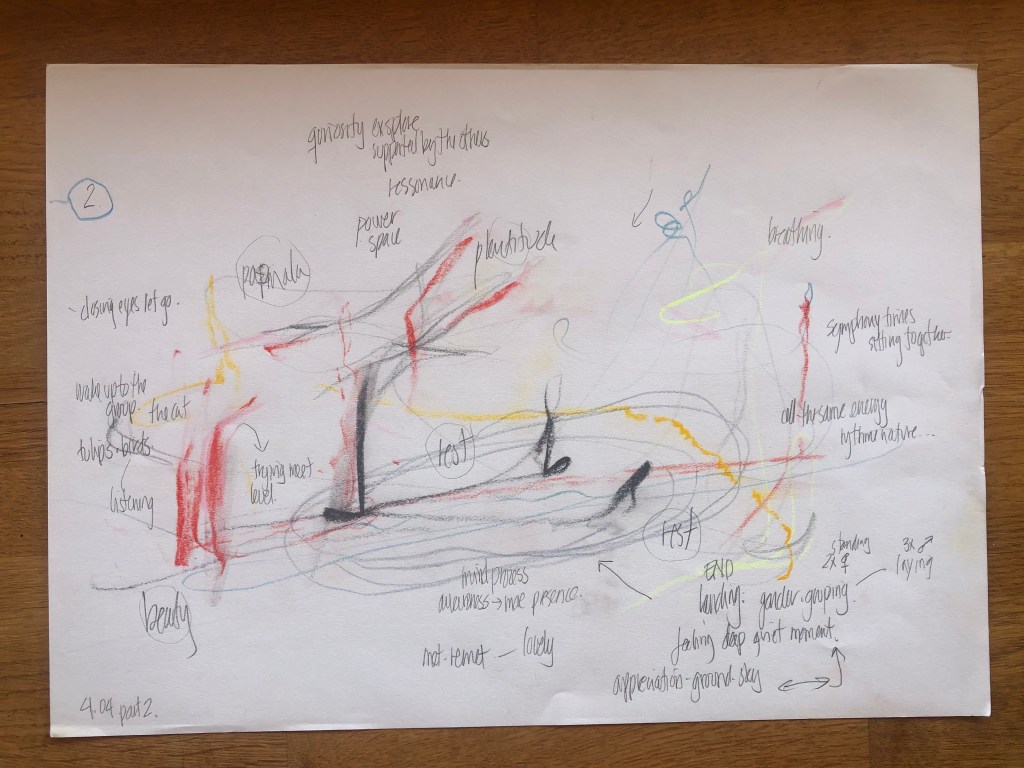 explore
supported by the others
ressonance.
2.
power
space
breathing.
- closing eyes let go.
symphony times
sitting together
wake up to the
group. the cat
call the same energy
rythme nature...
tulips - birds
rest
trying meet
level.
listening
rest
standing
2x ♀
3x ♂
laying
mind process
awareness → more presence.
END
landing: gender grouping.
beauty
feeling deep quiet moment.
lovely
appreciation - ground - sky
4.04 part 2.